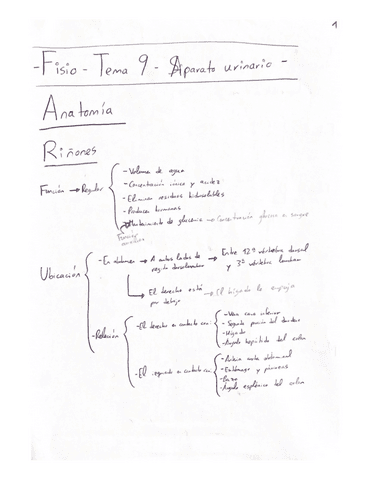 1
-Fisio - Tema 9 - Aparato urinario -
Anatomía
Riñones
Función → Regular
- Volumen de agua
- Concentración iónica y acidez
- Eliminar residuos hidrosolubles
- Producir hormonas
- Mantenimiento de glucemia → Concentración glucosa en sangre
Ubicación
- En abdomen → A ambos lados de
región dorsolumbar
→ Entre 12ª vértebra dorsal
y 3ª vértebra lumbar
→ El derecho está
por debajo
→ El hígado lo empuja
- Relación
- El derecho en contacto con
- Vena cava inferior
- Segunda porción del duodeno
- Hígado
- Ángulo hepático del colon
- El izquierdo en contacto con
- Arteria aorta abdominal
- Estómago y páncreas
- Bazo
- Ángulo esplénico del colon